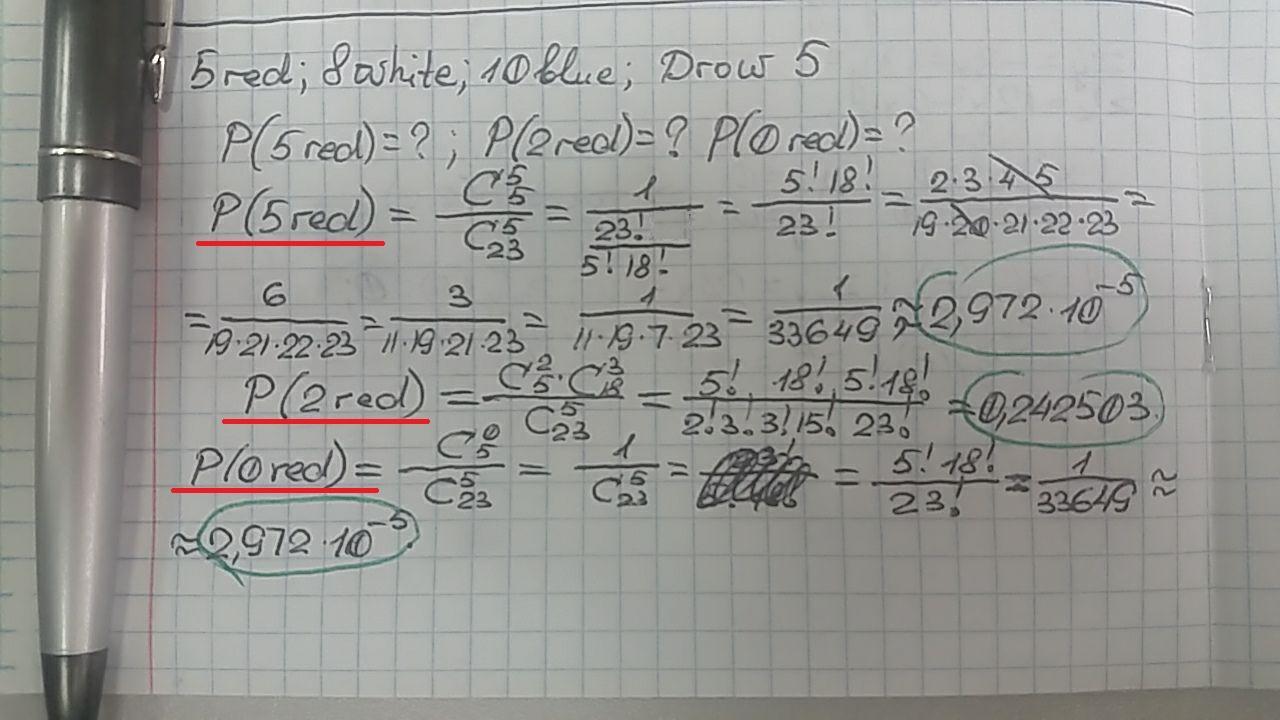 5 red; 8 white; 10 blue; Drow 5
P(5 red) = ? ; P(2 red) = ? P(0 red) = ?
P(5 red) = C₅⁵ / C₂₃⁵ = 1 / (23! / 5! 18!) = 5! 18! / 23! = 2·3·4·5 / 19·20·21·22·23 =
= 6 / 19·21·22·23 = 3 / 11·19·21·23 = 1 / 11·19·7·23 = 1 / 33649 ≈ 2,972·10⁻⁵
P(2 red) = C₅²·C₁₈³ / C₂₃⁵ = 5! · 18! · 5! 18! / 2! 3! · 3! 15! · 23! = 0,242503
P(0 red) = C₅⁰ / C₂₃⁵ = 1 / C₂₃⁵ = = 5! 18! / 23! = 1 / 33649 ≈
≈ 2,972·10⁻⁵